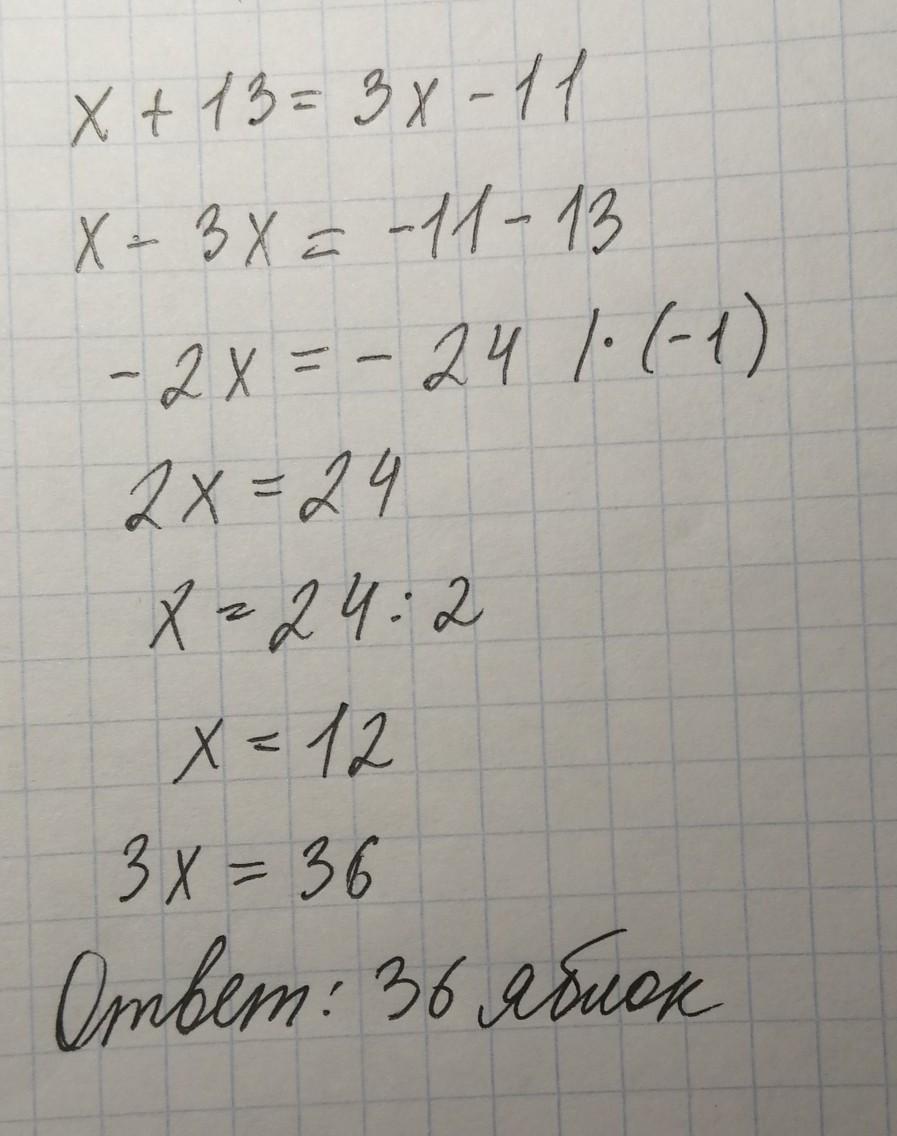 x + 13 = 3x - 11
x - 3x = -11 - 13
- 2x = - 24 /· (-1)
2x = 24
x = 24 : 2
x = 12
3x = 36
Ответ: 36 яблок